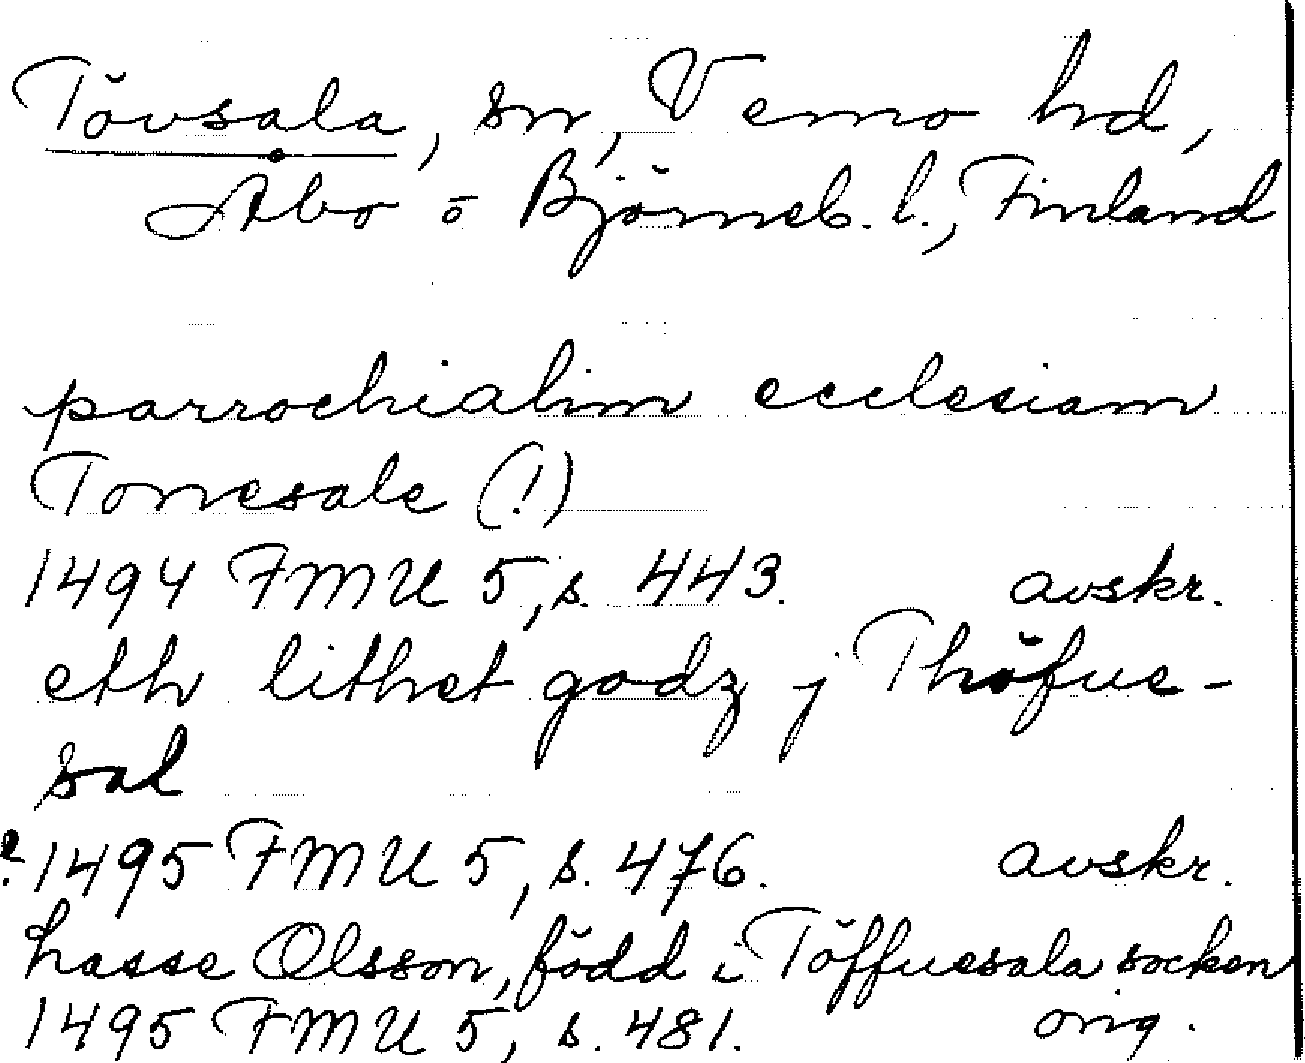 Tövsala, sn, Vemo hd,
Åbo o Björneb. l., Finland
parrochialim ecclesiam
Tonesale (!)
1494 FMU 5, s. 443. avskr.
eth lithet godz j Thöfue-
sal
? 1495 FMU 5, s. 476. avskr.
hasse Olsson, född i Töffuesala socken
1495 FMU 5, s. 481. orig.